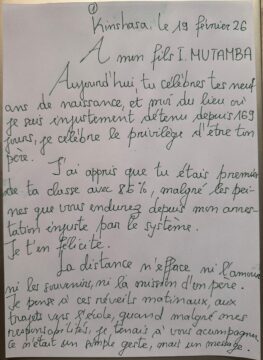 ①
Kinshasa, le 19 février 26
A mon fils I. MUTAMBA
Aujourd'hui, tu célèbres tes neuf
ans de naissance, et moi du lieu où
je suis injustement détenu depuis 169
jours, je célèbre le privilège d'être ton
père.
J'ai appris que tu étais premier
de ta classe aux 85%, malgré les pei-
nes que vous endurez depuis mon arres-
tation injuste par le système.
Je t'en félicite.
La distance n'efface ni l'amour
ni les souvenirs, ni la mission d'un père.
Je pense à ces réveils matinaux, aux
trajets vers l'école, quand malgré mes
responsabilités, je tenais à vous accompagner
ce n'était un simple geste, mais un message.